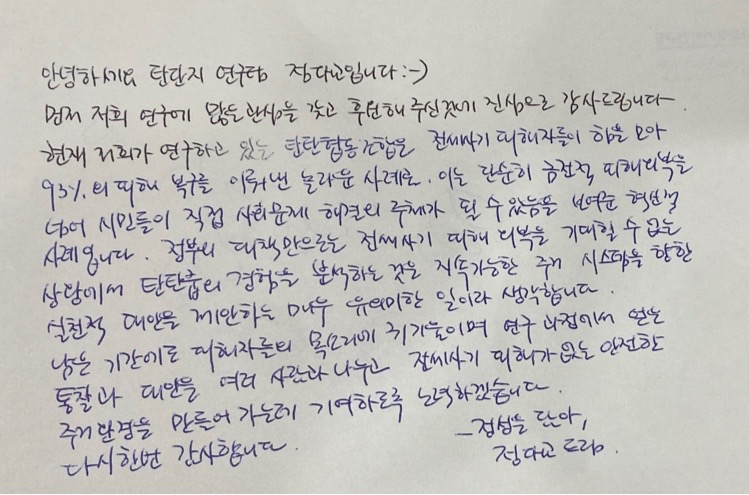 안녕하세요 탄단지 연구팀 정다교입니다 :-)
먼저 저희 연구에 많은 관심을 갖고 후원해 주신것에 진심으로 감사드립니다.
현재 저희가 연구하고 있는 탄탄협동조합은 전세사기 피해자들이 힘을 모아
93%의 피해 복구를 이뤄낸 놀라운 사례요. 이는 단순히 금전적 피해회복을
넘어 시민들이 직접 사회문제 해결의 주체가 될 수 있음을 보여준 혁신적
사례입니다. 정부의 대책만으로는 전세사기 피해 회복을 기대할 수 없는
상황에서 탄탄훕의 경험을 분석하는 것은 지속가능한 주거 시스템을 향한
실천적 대안을 제안하는 매우 유의미한 일이라 생각합니다.
남은 기간에도 피해자들의 목소리에 귀기울이며 연구 과정에서 얻은
통찰과 대안을 여러 사람과 나누고 전세사기 피해가 없는 안전한
주거 환경을 만들어 가는데 기여하도록 노력하겠습니다.
다시한번 감사합니다.
- 정성을 담아,
정다교 드림.